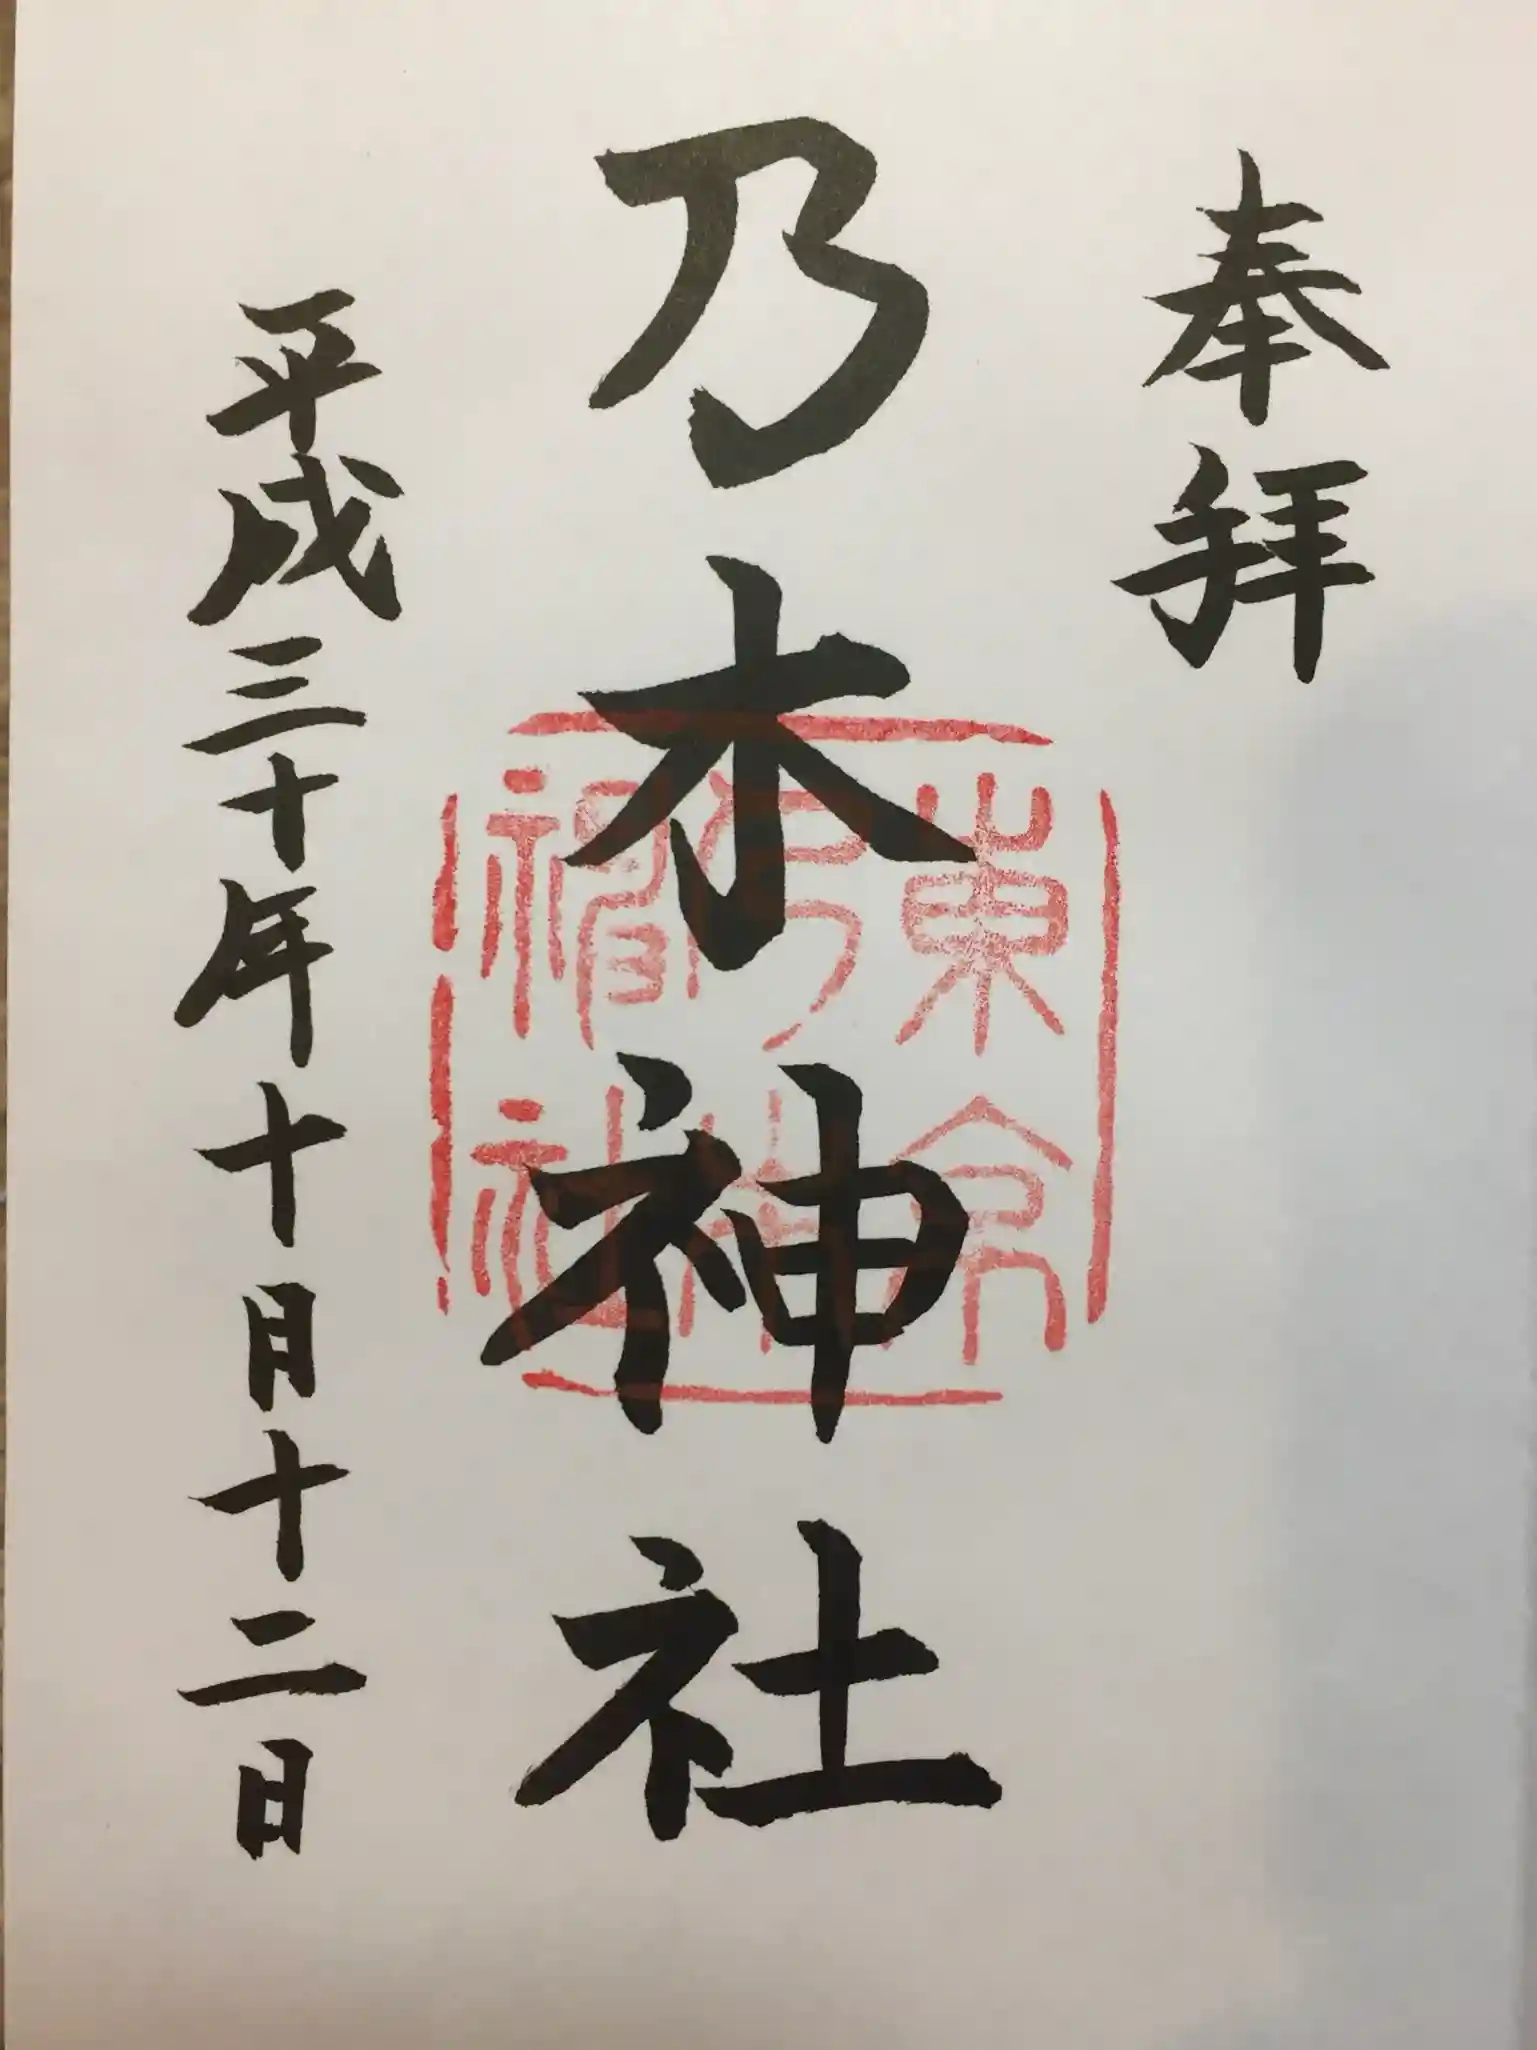 奉拜
乃木神社
平成三十年十月十二日
東京乃木神社